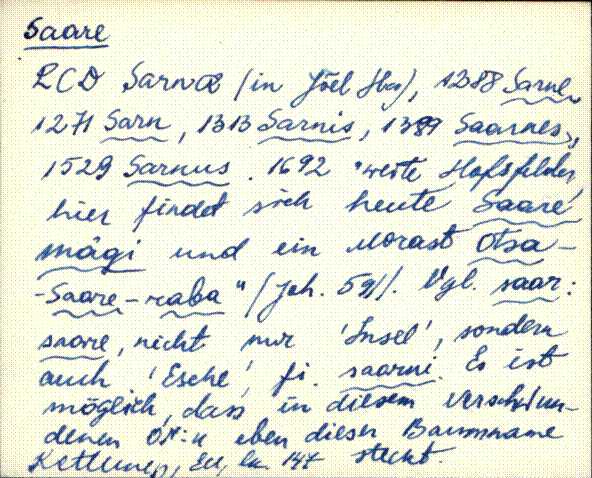 Saare
LCD Sarnæ (in Jõel Hbg), 1288 Sarne,
1271 Sarn, 1313 Sarnis, 1389 Saarnes,
1529 Sarnus. 1692 "weite Hofsfelder,
hier findet sich heute Saare
mägi und ein Morast Otsa-
-Saare-raba" (Joh. 59). Vgl. saar:
saare, nicht nur 'Insel', sondern
auch 'Esche', fi. saarni. Es ist
möglich, dass in diesem verschwun-
denen ON:n eben dieser Baumname
Kettunen, 147 steckt.